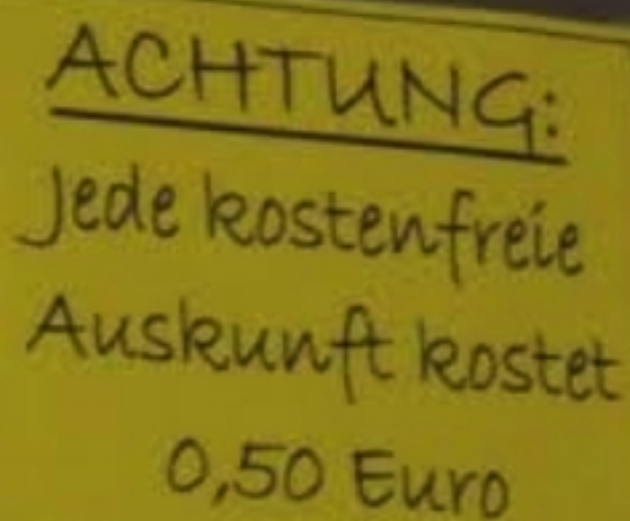 ACHTUNG:
Jede kostenfreie
Auskunft kostet
0,50 Euro